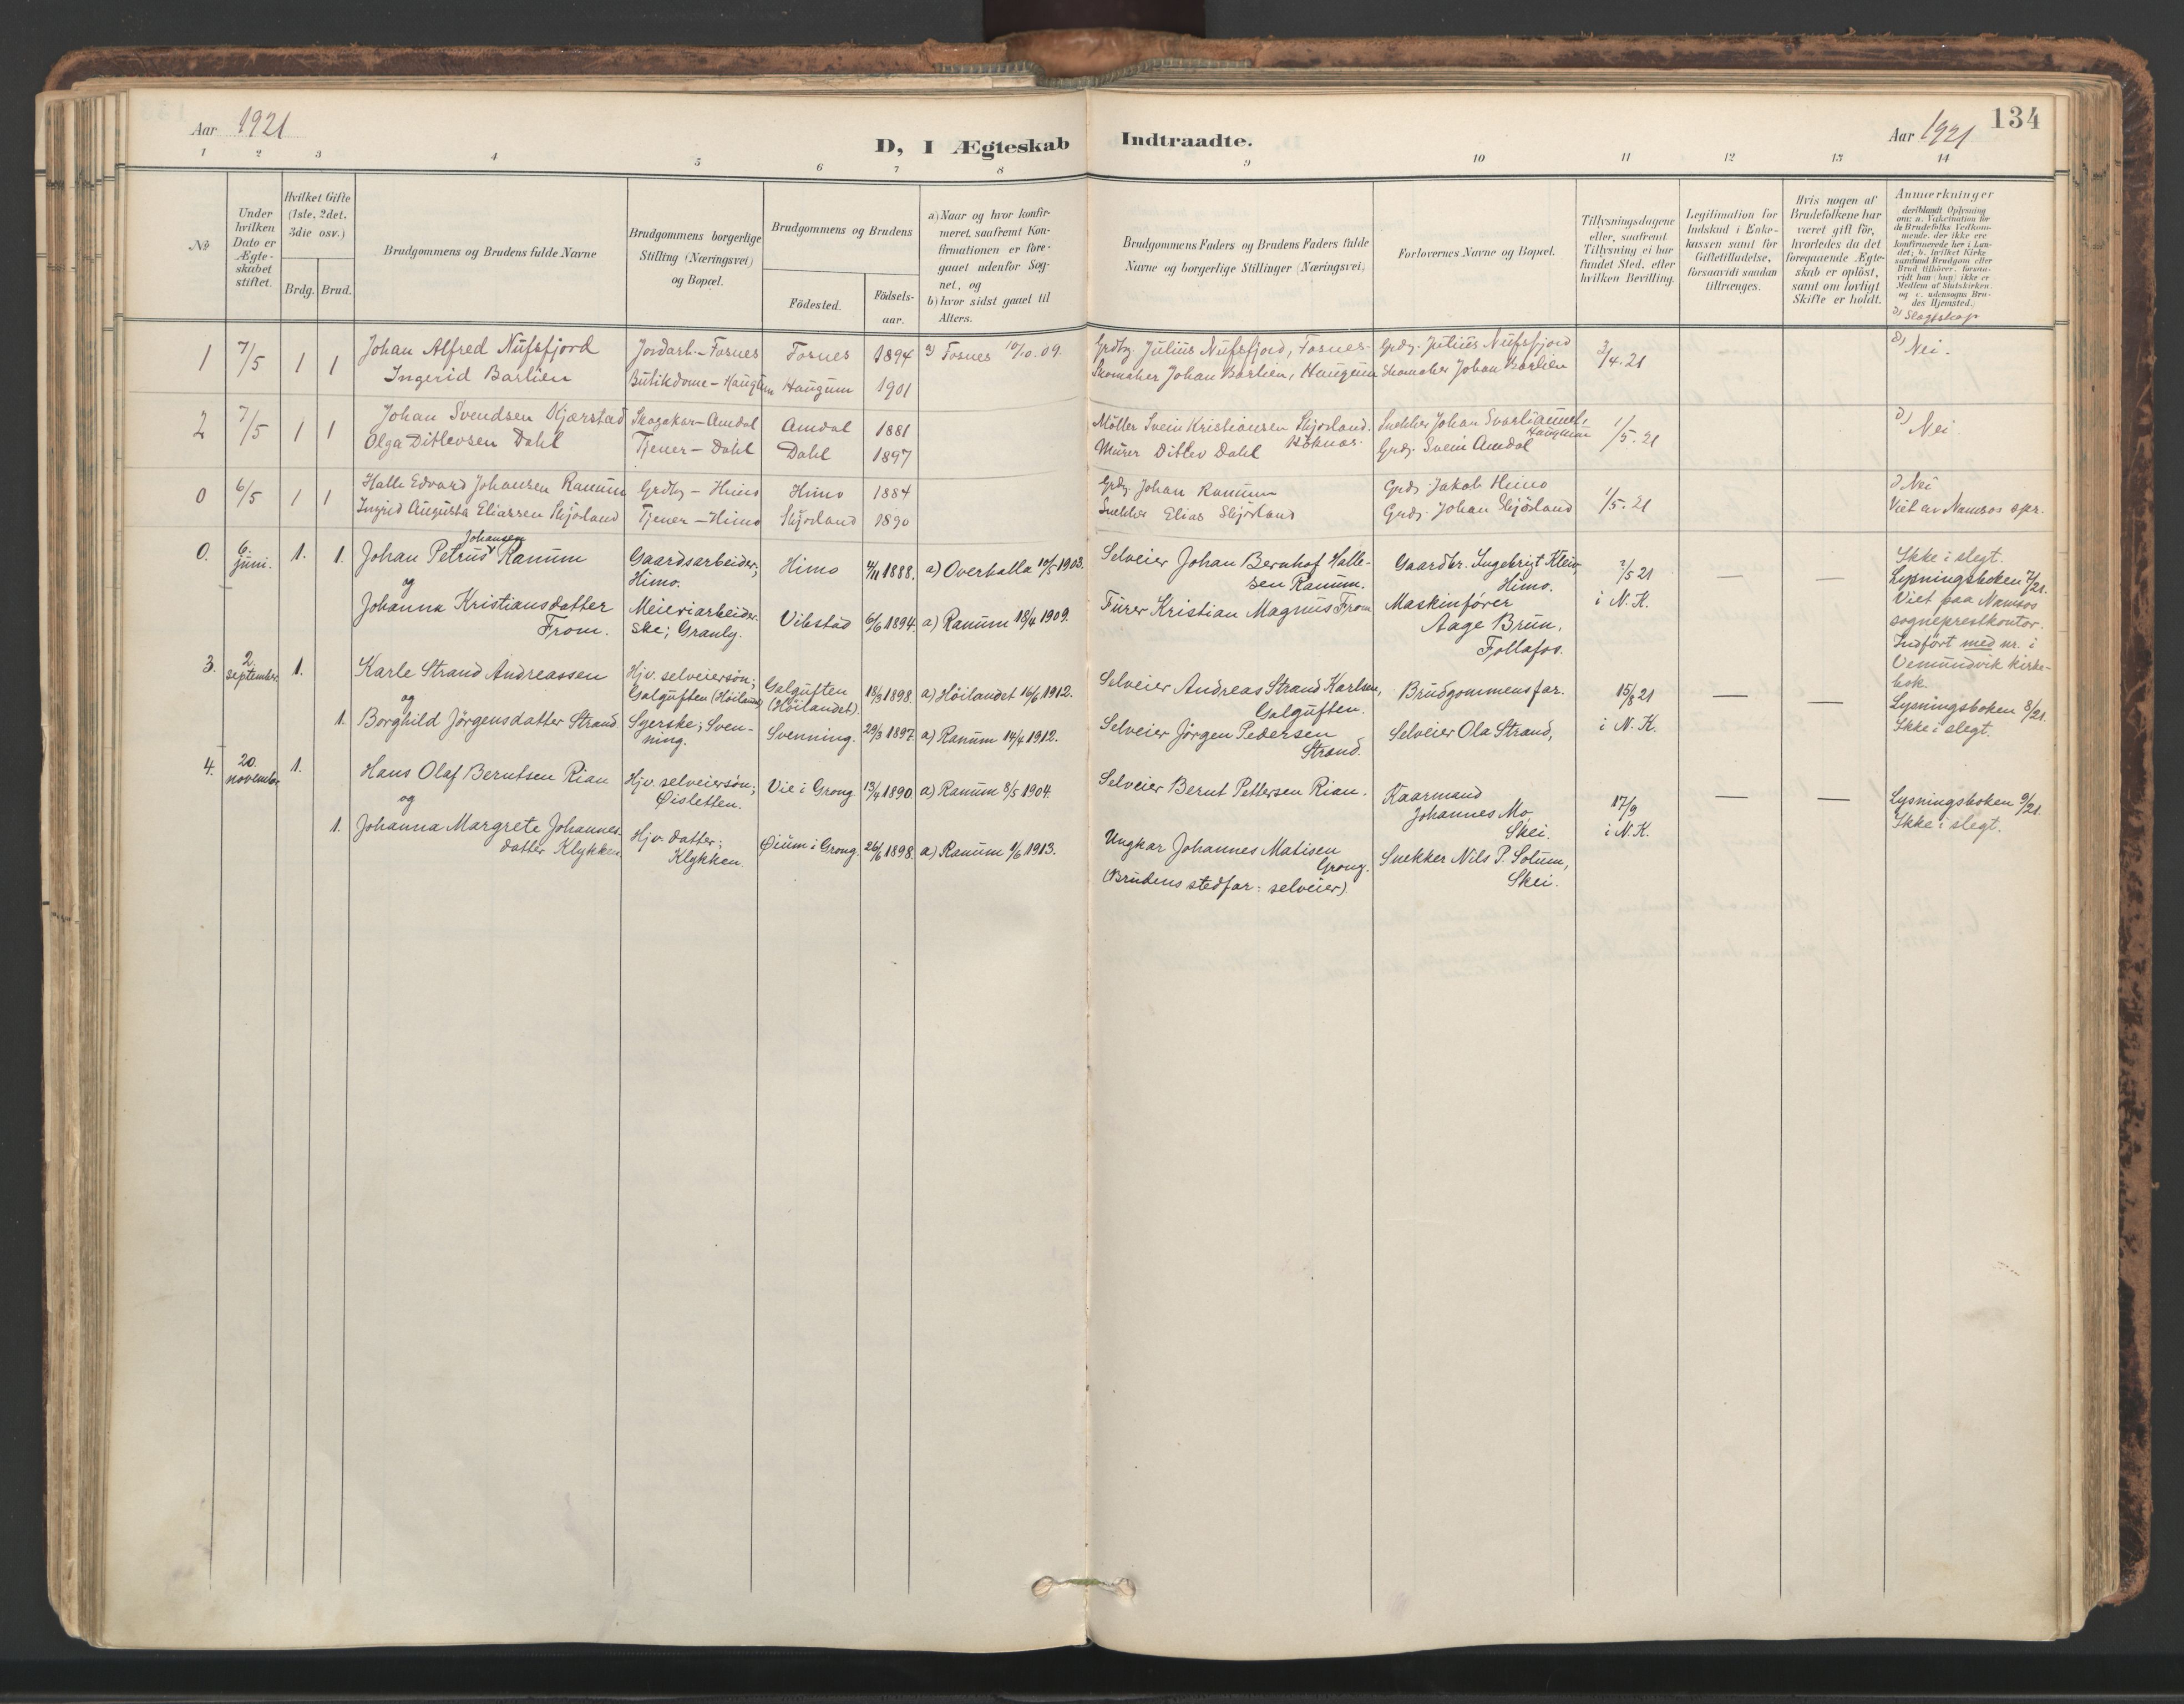 Aar 1921
D, I Ægteskab Indtraadte.
Aar 1921
134
1 2 3 4 5 6 7 8 9 10 11 12 13 14
No
Under hvilken Dato er Ægte-skabet stiftet.
Hvilket Gifte (1ste, 2det, 3die osv.)
Brdg. Brud.
Brudgommens og Brudens fulde Navne
Brudgommens borgerlige Stilling (Næringsvei) og Bopæl.
Brudgommens og Brudens
Födested.
Födsels-aar.
a) Naar og hvor konfir-meret, saafremt Kon-firmationen er fore-gaaet udenfor Sog-net, og
b) hvor sidst gaaet til Alters.
Brudgommens Faders og Brudens Faders fulde Navne og borgerlige Stillinger (Næringsvei)
Forlovernes Navne og Bopæl.
Tillysningsdagene eller, saafremt Tillysning ei har fundet Sted, efter hvilken Bevilling.
Legitimation for Indskud i Enke-kassen samt for Giftetilladelse, forsaavidt saadan tiltrænges.
Hvis nogen af Brudefolkene har været gift för, hvorledes da det foregaaende Ægte-skab er oplöst, samt om lovligt Skifte er holdt.
Anmærkninger
deriblandt Oplysning om: a. Vakcination for de Brudefolks Vedkom-mende, der ikke ere konfirmerede her i Lan-det; b. hvilket Kirke samfund Brudgom eller Brud tilhörer, forsaa-vidt han (hun) ikke er Medlem af Statskirken. og c. udensogns Bru-des Hjemsted.
D) Slagtskap
1 7/5 1 1 Johan Alfred Nufsfjord Jordarb.-Fosnes Fosnes 1894 a) Fosnes 10/10.09. Grdbg Julius Nufsfjord, Fosnes- Grdg. Julius Nufsfjord 3/4.21 D) Nei.
Ingerid Barlien Butikdame-Haugum Haugum 1901 Skomaker Johan Barlien, Haugum Skomaker Johan Barlien
2 7/5 1 1 Johan Svendsen Kjærstad Skogskar-Amdal Amdal 1881 Möller Svein Kristiansen Skjörland. Snekker Johan Haugum 1/5.21 D) Nei
Olga Ditlevsen Dahl Tjener-Dahl Dahl 1897 Murer Ditlev Dahl Grdg. Svein Amdal
0 6/5 1 1 Halle Edvard Johansen Ranum Grdbg-Himo Himo 1884 Grdg. Johan Ranum Grdg Jakob Himo 1/5.21 D Nei
Ingrid Augusta Eliassen Skjörland Tjener-Himo Skjörland 1890 Snekker Elias Skjörland Grdg. Johan Skjörland Viet av Namsos spr.
0. 6. juni. 1. 1. Johan Petrus Johansen Ranum Gaardsarbeider; Himo. Himo 4/11 1888. a) Overhalla 10/5 1903. Selveier Johan Bernhof Halle-sen Ranum. Gaardbr. Ingebrigt Klein, Himo. 2/5 21 i N.K. — — Ikke i slegt.
og
Johanna Kristiansdatter From. Meieriarbeider-ske; Granly. Vibstad 6/6 1894. a) Ranum 18/4 1909. Furer Kristian Magnus From Maskinförer Aage Brun, Follafos.
Lysningsboken 7/21.
Viet paa Namsos sogneprestkontor.
Indført med nr. i Vemundvik kirke-bok.
3. 2. september 1. Karle Strand Andreassen Hjv. selveiersön; Galguften (Höilandet) Galguften (Höilandet). 18/3 1898. a) Höilandet 16/6 1912. Selveier Andreas Strand Karlsen, Galguften. Brudgommens far. 15/8 21 i N.K. — — Lysningsboken 8/21.
og
1. Borghild Jörgensdatter Strand Syerske; Sven-ning. Svenning. 29/3 1897. a) Ranum 14/4 1912. Selveier Jörgen Pedersen Strand. Selveier Ola Strand, Ikke i slegt.
4. 20. november 1. Hans Olaf Berntsen Rian Hjv. selveiersön; Öisletten. Vie i Grong 13/4 1890 a) Ranum 8/5 1904. Selveier Bernt Pettersen Rian. Kaarmand Johannes Mo, Skei. 17/9 i N.K. — — Lysningsboken 9/21.
og
1. Johanna Margrete Johannes-datter Klykken. Hjv. datter; Klykken. Öium i Grong. 26/6 1898. a) Ranum 1/6 1913. Ungkar Johannes Matisen Grong. Snekker Nils P. Solum, Skei. Ikke i slegt.
(Brudens stedfar: selveier).